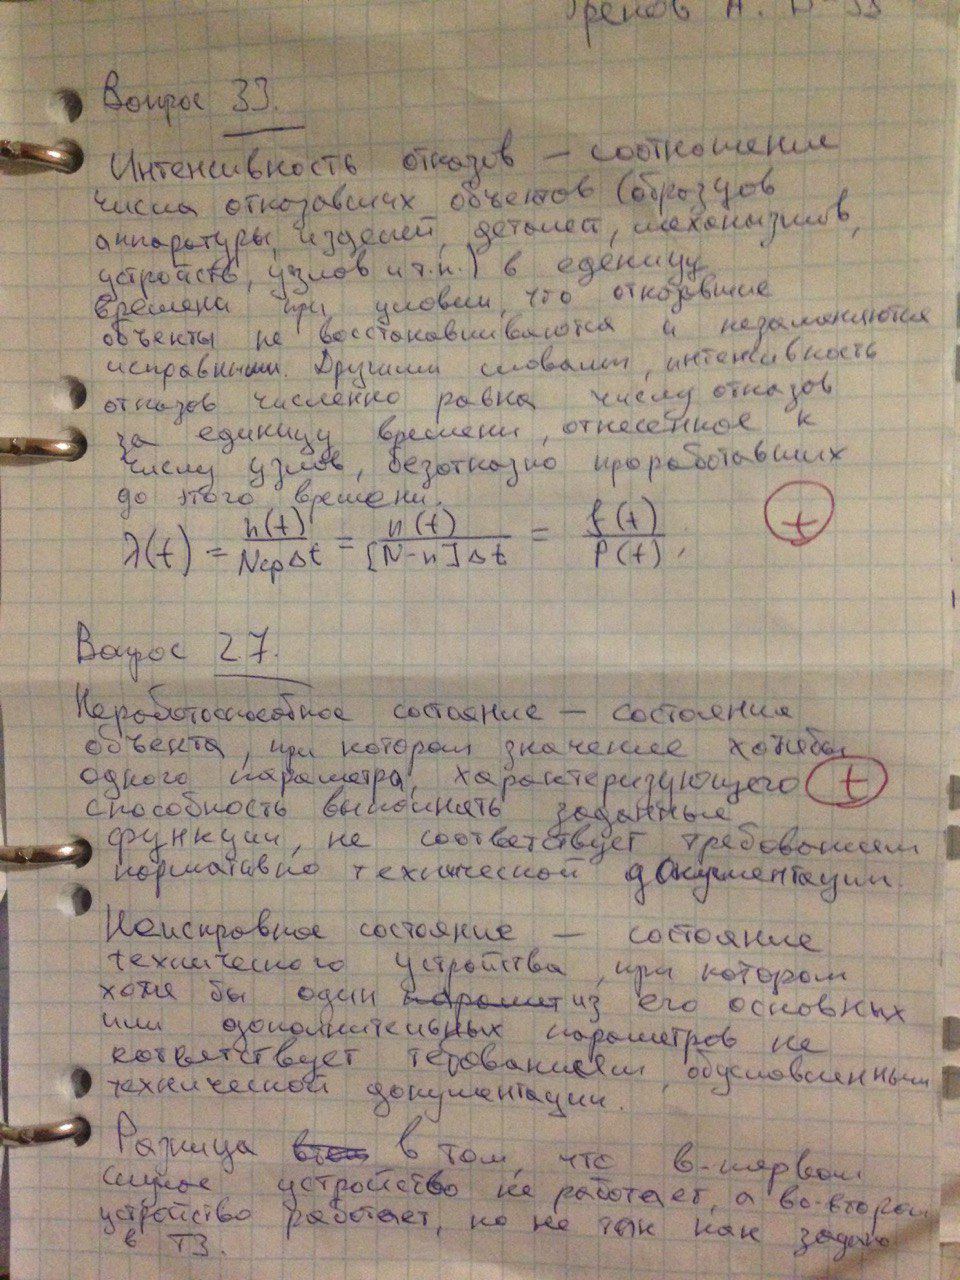 А.
Вопрос 33.
Интенсивность отказов – соотношение
числа отказавших объектов (образцов
аппаратуры, изделей, деталей, механызмов,
устройств, узлов и т.п.) в еденицу
времени при условии, что отказавшие
объекты не восстанавливаются и незаменяются
исправными. Другими словами, интенсивность
отказов численно равна числу отказов
за единицу времени, отнесенное к
числу узлов, безотказно проработавших
до этого времени.
λ(t) = n(t)/NсрΔt = n(t)/[N-n]Δt = f(t)/P(t).
+
Вопрос 27.
Неработоспособное состояние – состояния
объекта, при котором значение хотябы
одного параметра, характеризующего
+
способность выполнять заданные
функции, не соответствует требованиям
нормативно технической документации.
Неисправное состояние – состояние
технического устройства, при котором
хотя бы один из его основных
или дополнительных параметров не
соответствует требованиям, обусловленным
технической документации.
Разница в том, что в-первом
случае устройство не работает, а во-втором
устройство работает, но не так как задано
в ТЗ.